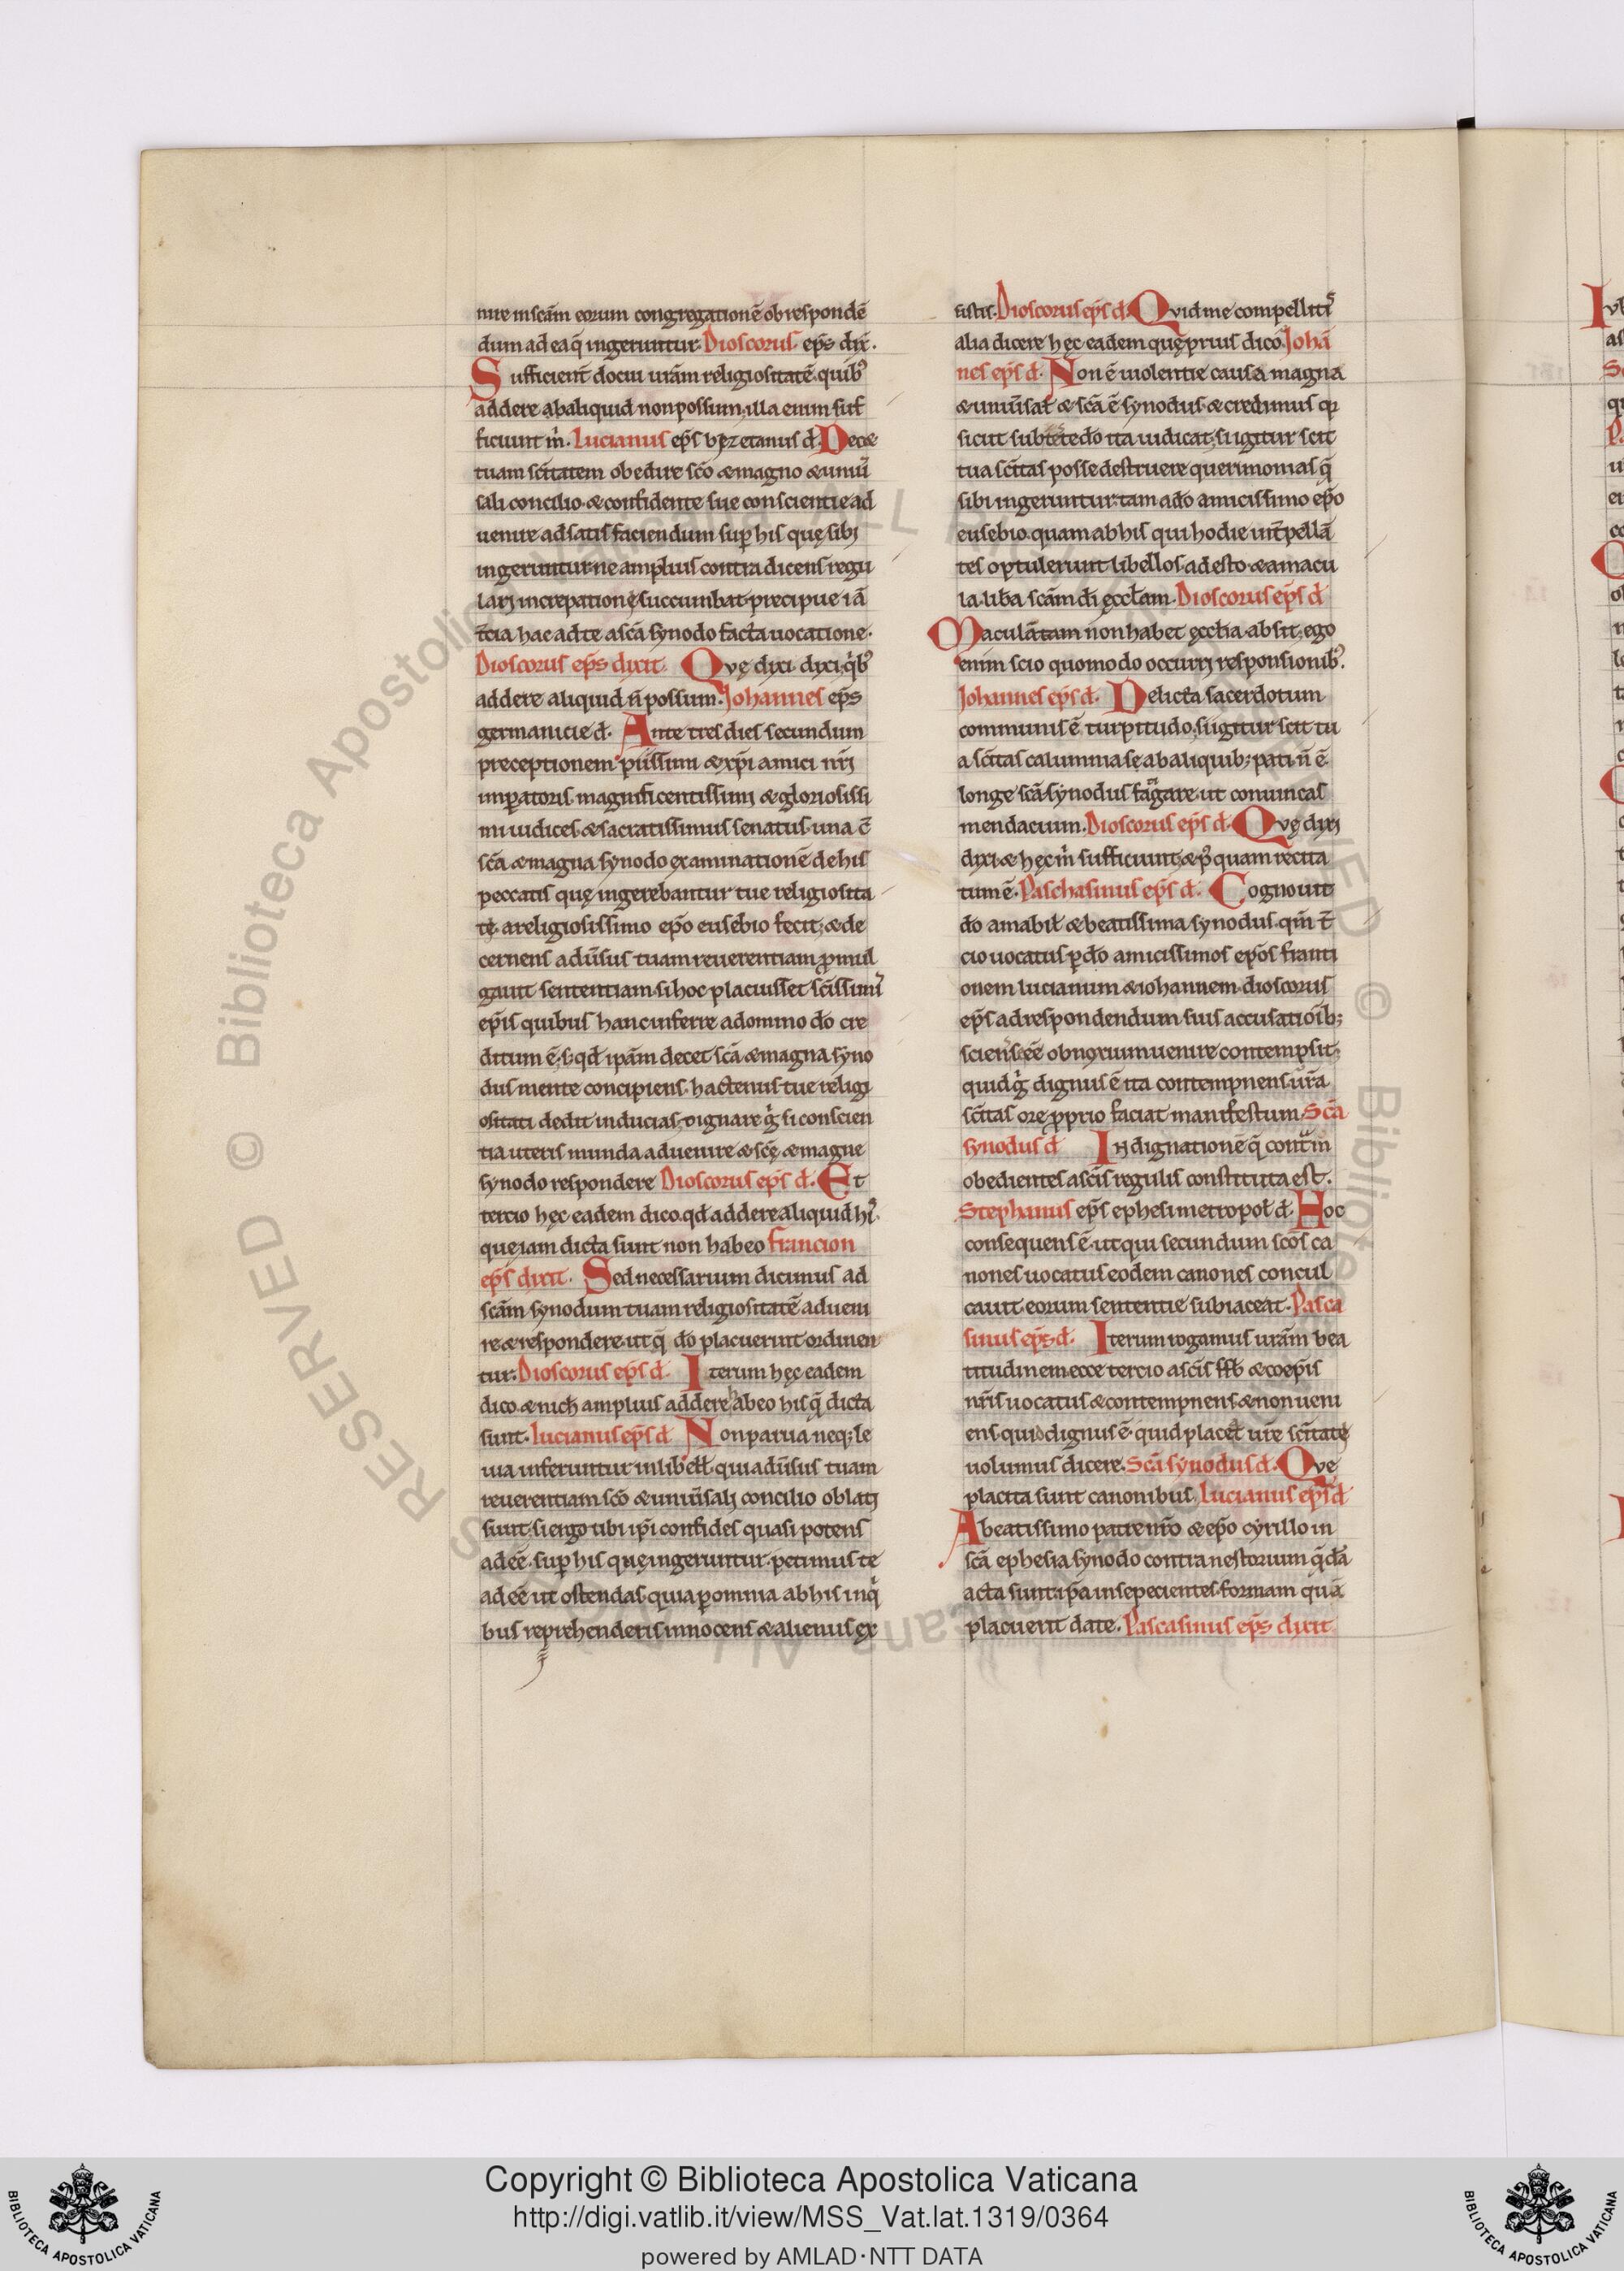 nire in scãm eorum congregationẽ ob respondẽ
dum ad ea q̃ ingeruntur. Dioscorus ep̃s dix̃.
Sufficient̃ docui ur̃am religiositatẽ. quib⁹
addere ab aliquid non possum. illa enim suf
ficiunt m̃. Lucianus ep̃s bẏzetanus d̃. Decæ
tuam sc̃itatem obedire sc̃o & magno & uniũ
sali concilio. & confidente sue conscientie ad
uenire ad satisfaciendum sup̃ his quę sibi
ingeruntur. ne amplius contradicens regu
lari increpatione succumbat. precipue iã
t̃cia hac ad te a scã synodo facta uocatione.
Dioscorus ep̃s dixit. Quę dixi dixi. q̃b⁹
addere aliquid ñ possum. Johannes ep̃s
germanicie d̃. Ante tres dies secundum
preceptionem piissimi & xp̃i amici nr̃i
imp̃atoris magnificentissimi & gloriosissi
mi iudices. & sacratissimus senatus. una c̃
scã & magna synodo examinationẽ de his
peccatis quę ingerebantur tue religiosita
te. a religiosissimo ep̃o eusebio fecit. & de
cernens adũsus tuam reuerentiam p̃mul
gauit sententiam. si hoc placuisset sc̃issimis
ep̃is quibus hanc inferre a domino dõ cre
ditum ẽ. s; qd̃ ip̃am decet scã & magna syno
dus mente concipiens. hactenus tue religi
ositati dedit inducias. dignare g̃ si conscien
tia uteris munda aduenire & scę & magne
synodo respondere. Dioscorus ep̃s d̃. Et
tercio hęc eadem dico. qd̃ addere aliquid hi⁹
que iam dicta sunt non habeo. francion
ep̃s dixit. Sed necessarium dicimus ad
scãm synodum tuam religiositatẽ adueni
re & respondere. ut q̃ dõ placuerint ordinen
tur. Dioscorus ep̃s d̃. Iterum hęc eadem
dico. & nich̃ amplius addere habeo his q̃ dicta
sunt. Lucianus ep̃s d̃. Non parua neq; le
uia inferuntur in libell̃. qui adũsus tuam
reuerentiam sc̃o & uniũsali concilio oblati
sunt. si ergo tibi ip̃i confides quasi potens
adeẽ. sup̃ his quę ingeruntur. petimus te
adeẽ ut ostendas quia p̃ omnia ab his in q̃
bus reprehenderis innocens & alienus ex
sistis. Dioscorus ep̃s d̃. Quid me compellitis
alia dicere hęc eadem quę prius dico. Johã
nes ep̃s d̃. Non ẽ uiolentie causa magna
& uniũsal̃ & scã ẽ synodus. & credimus qr
sicut sub teste dõ ita iudicat. si igitur scit
tua sc̃itas posse destruere querimonias q̃
sibi ingeruntur. tam a dõ amicissimo ep̃o
eusebio. quam ab his qui hodie int̃pellã
tes optulerunt libellos. adesto. & a macu
la. lib̃a scãm di ęccl̃am. Dioscorus ep̃s d̃
Maculãtam non habet ęcclia. absit. ego
enim scio quomodo occurri responsionib⁹.
Johannes ep̃s d̃. Delicta sacerdotum
communis ẽ turpitudo. si igitur scit tu
a sc̃itas calumnia se ab aliquib; pati ñ ẽ.
longe scã synodus fatigare. ut conuincas
mendacium. Dioscorus ep̃s d̃. Quę dixi
dixi. & hęc m̃ sufficiunt. & p⁹quam recita
tum ẽ. Paschasinus ep̃s d̃. Cognouit
dõ amabil̃ & beatissima synodus. qm̃ t̃
cio uocatus p̃ dõ amicissimos ep̃os franti
onem lucianum & iohannem dioscorus
ep̃s ad respondendum suis accusatiõib;
sciens eẽ obnoxium uenire contempsit.
quid g̃ dignus ẽ ita contempnens. ur̃a
sc̃itas ore p̃prio faciat manifestum. Scã
synodus d̃ Indignationẽ q̃ cont̃ in
obedientes a scĩs regulis constituta est.
Stephanus ep̃s ephesi metropol̃ d̃. Hoc
consequens ẽ. ut qui secundum sc̃os ca
nones uocatus eodem canones concul
cauit. eorum sententie subiaceat. Pasca
sinus ep̃s d̃. Iterum rogamus ur̃am bea
titudinem. ecce tercio a scĩs frib̃ & coep̃is
nr̃is uocatus & contempnens & non ueni
ens. quid dignus ẽ. quid placet ur̃e sc̃itate
uolumus dicere. Scã synodus d̃. Que
placita sunt canonibus. Lucianus ep̃s d̃
A beatissimo patre nr̃o & ep̃o cyrillo in
scã ephesia synodo contra nestorium q̃dã
acta sunt. ip̃a insepecientes. formam quã
placuerit date. Pascasinus ep̃s dixit
Copyright © Biblioteca Apostolica Vaticana
http://digi.vatlib.it/view/MSS_Vat.lat.1319/0364
powered by AMLAD·NTT DATA